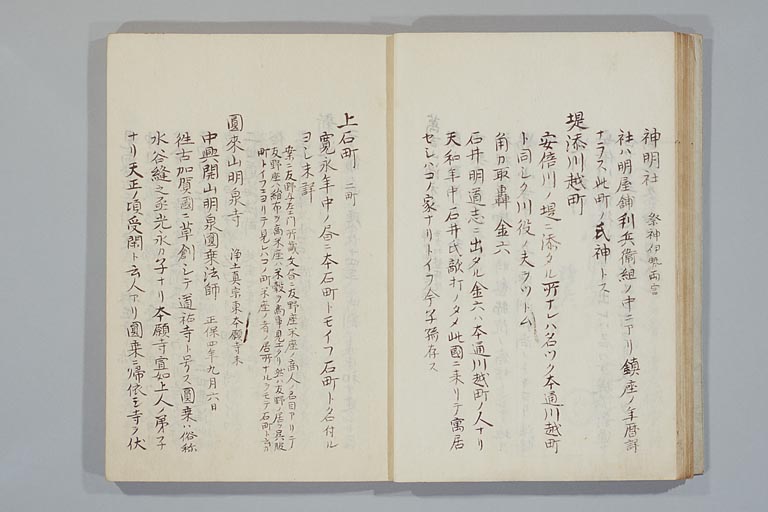 神明社 祭神伊勢両宮
社ハ明屋鋪利兵衛組ノ中ニアリ鎮座ノ年暦詳
ナラス此町ノ氏神トス
堤添川越町
安倍川ノ堤ニ添タル所ナレハ名ツク本通川越町
ト同シク川役ノ夫ヲツトム
角力取轟金六
石井明道志ニ出タル金六ハ本通川越町ノ人ナリ
天和年中石井氏敵打ノタメ此國ニ来リテ寓居
セシハコノ家ナリトイフ今子孫存ス
上石町 二町
寛永年中ノ帳ニ本石町トモイフ石町ト名付ル
ヨシ未詳
案ニ友野与左エ門所蔵文書ニ友野座米座ノ商人ノ名目アリテ
友野座ハ絹布ヲ商米座ハ米穀ヲ商事見エタリ然ハ友野ノ居ヲ呉服
町トイフニヨリテ見レハコノ町米座ノ者ノ居所ナルヲモテ石町ト云カ
圓来山明泉寺 浄土真宗東本願寺末
中興開山明泉圓乗法師 正保四年九月六日
往古加賀國ニ草創シテ道祐寺ト号ス圓乗ハ俗称
水谷縫之丞光永カ子ナリ本願寺宣如上人ノ弟子
ナリ天正ノ頃受閑ト云人アリ圓乗ニ帰依シ寺ヲ伏